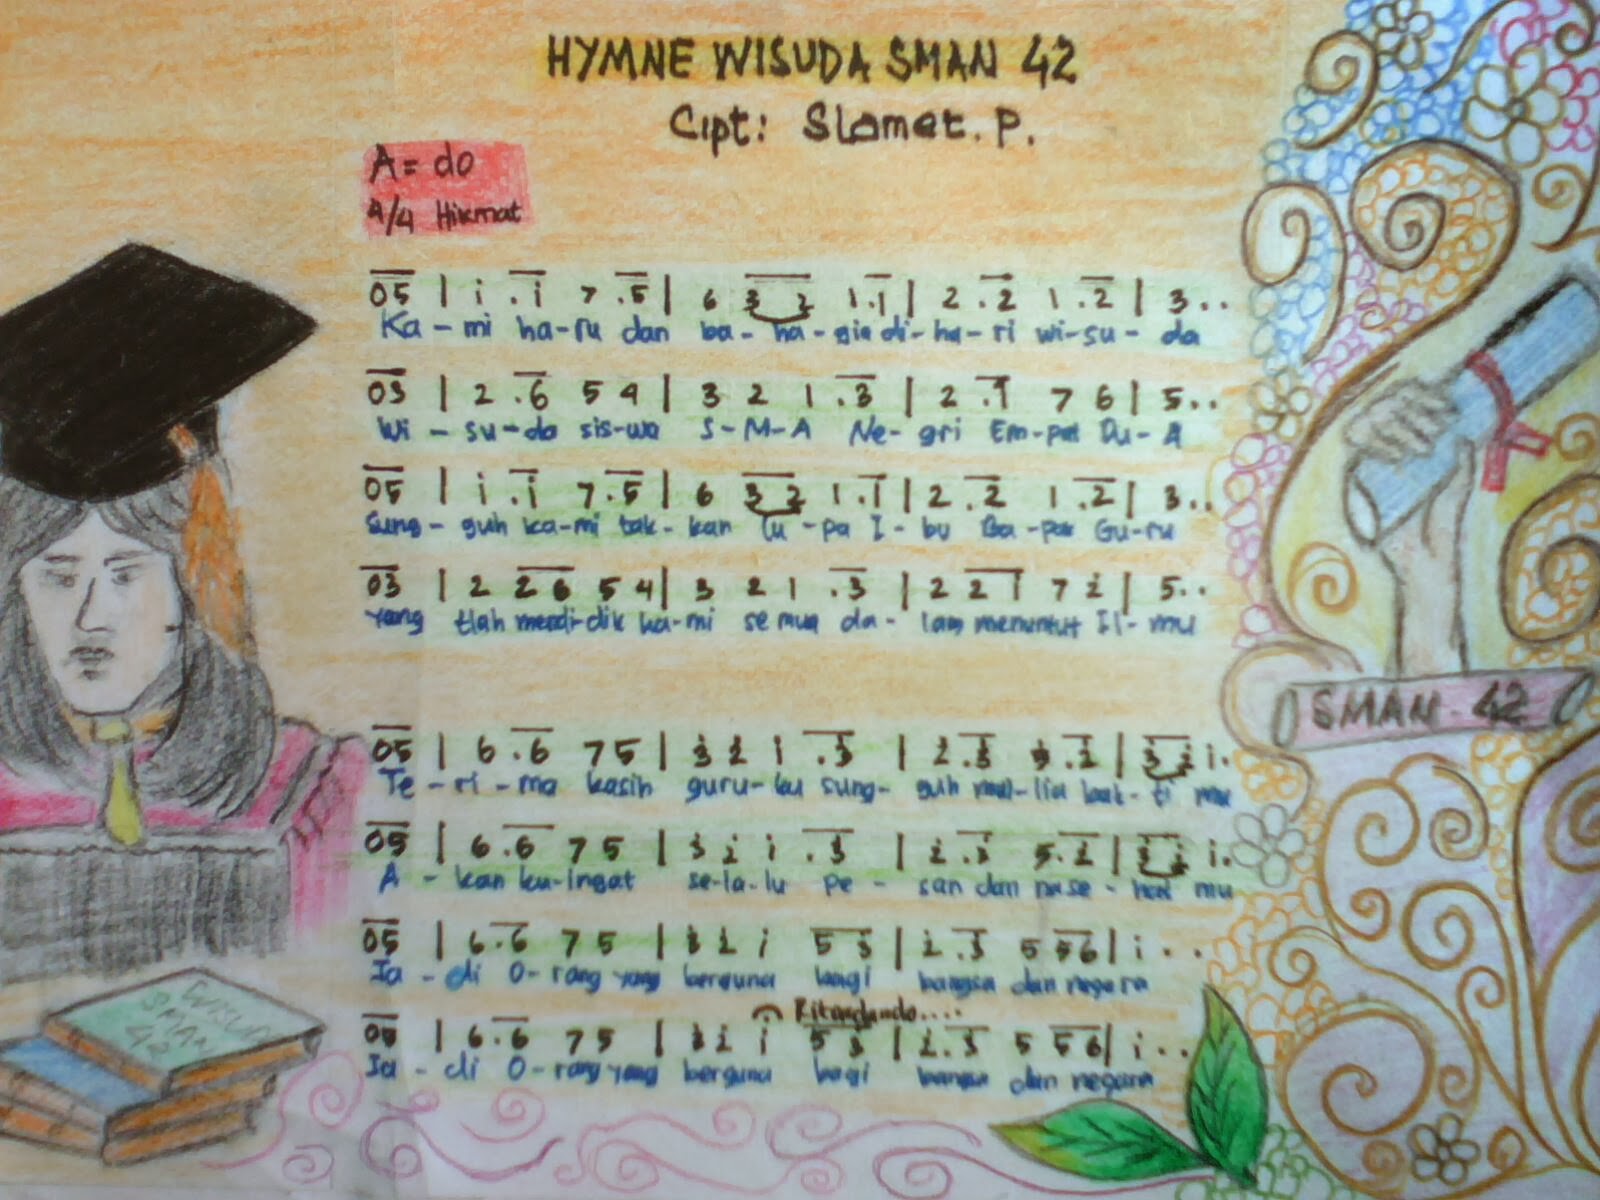 HYMNE WISUDA SMAN 42
Cipt: Slamet. P.
A = do
4/4 Hikmat
05 | i .i 7 .5 | 6 3 2 1 .1 | 2 .2 1 .2 | 3 . .
Ka - mi ha-ru dan ba - ha - gia di - ha - ri wi-su - da
03 | 2 .6 5 4 | 3 2 1 .3 | 2 .1 7 6 | 5 . .
Wi - su-da sis-wa S-M-A Ne - gri Em-pat Du-A
05 | i .i 7 .5 | 6 3 2 1 .1 | 2 .2 1 .2 | 3 . .
Sung - guh ka-mi tak - kan lu - pa I - bu Ba - pak Gu-ru
03 | 2 2 6 5 4 | 3 2 1 .3 | 2 2 1 7 2 | 5 . .
yang tlah mendi-dik ka-mi semua da - lam menuntut Il - mu
05 | 6 .6 7 5 | 3 2 i .3 | 2 .3 .2 | 3 2 i .
Te - ri - ma kasih guru - ku sung - guh mul-lia bak - ti mu
05 | 6 .6 7 5 | 3 2 i .3 | 2 .3 5 .2 | 3 2 i .
A - kan ku-ingat se-la-lu pe - san dan nase - hat mu
05 | 6 .6 7 5 | 3 2 i 5 3 | 2 .3 5 5 6 | i . .
Ja - di O-rang yang berguna bagi bangsa dan negara
Ritardando....
05 | 6 .6 7 5 | 3 2 i 5 3 | 2 .3 5 5 6 | i . .
Ja - di O-rang yang berguna bagi bangsa dan negara
SMAN - 42
WISUDA
SMAN
42